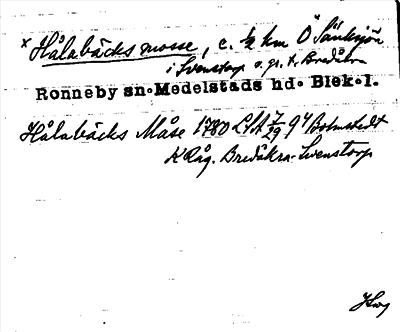 x Hålabäcks mosse, c. ½ km Ö Sänksjön
i Svenstorp o. gr. t. Bredåkra
Ronneby sn. Medelstads hd. Blek.l.
Hålabäcks Måse 1780 LSA 7/29 94 Bohmstedt
K Råg. Bredåkra-Svenstorp